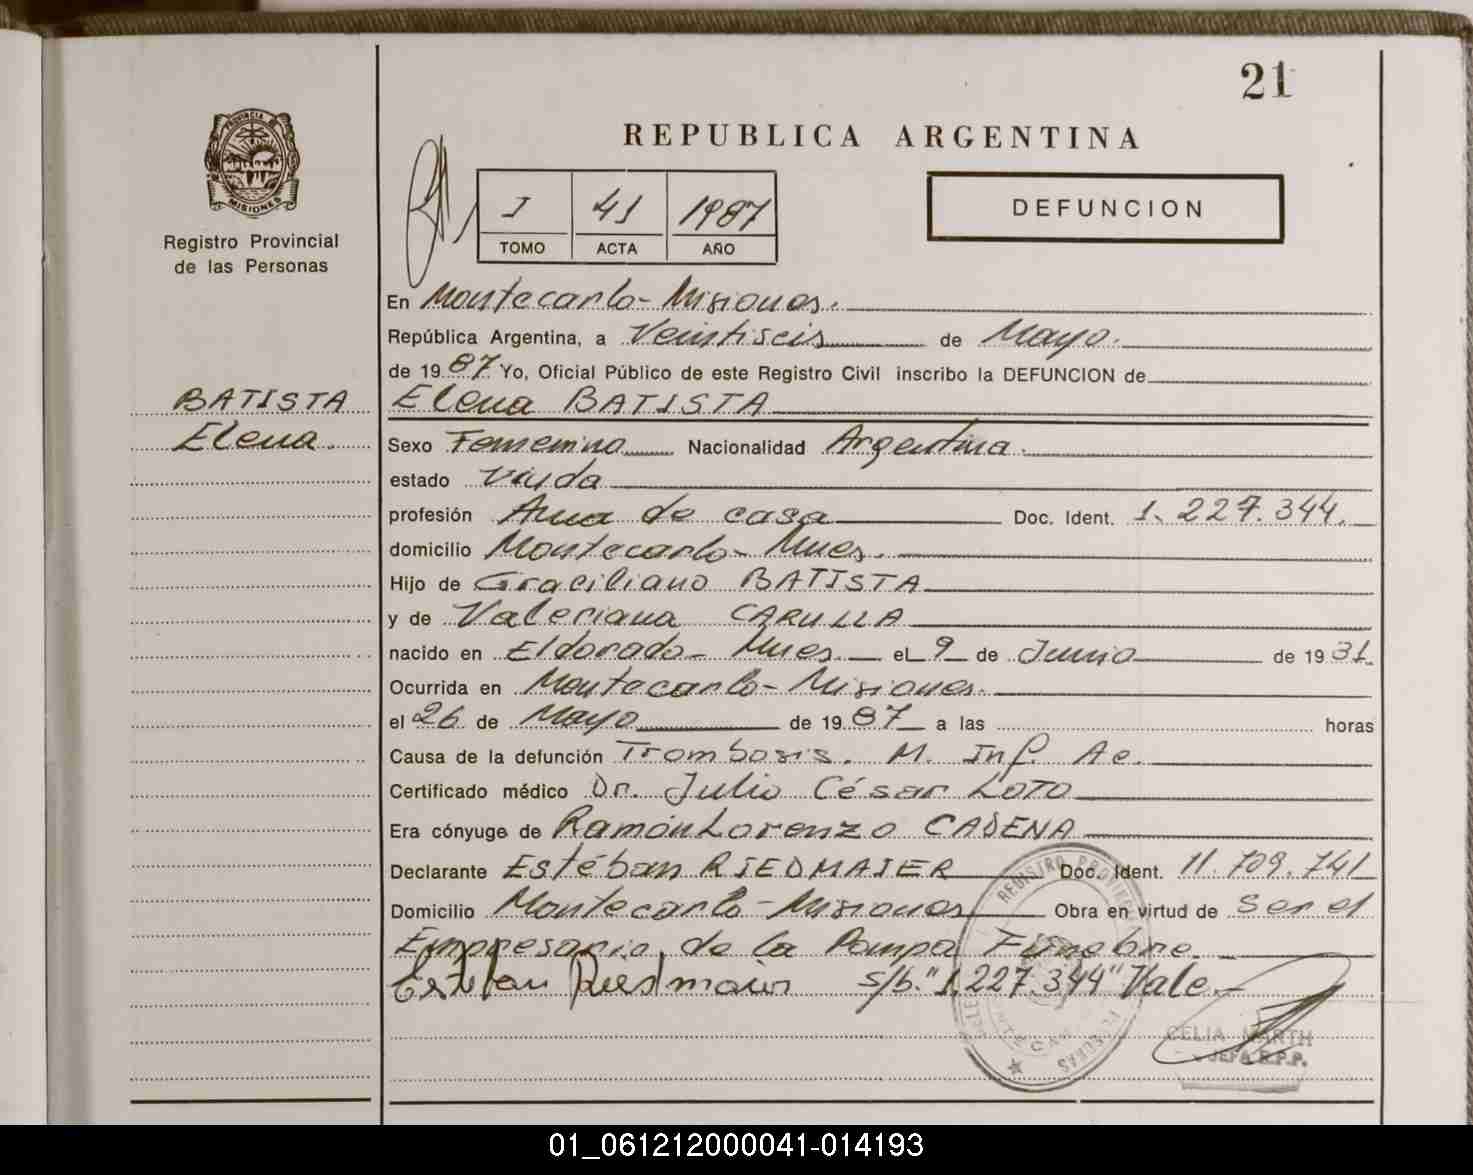 21
REPUBLICA ARGENTINA
PROVINCIA DE
MISIONES
Registro Provincial
de las Personas
I 41 1987
TOMO ACTA AÑO
DEFUNCION
En Montecarlo- Misiones.
República Argentina, a Veintiseis de Mayo.
de 1987 Yo, Oficial Público de este Registro Civil inscribo la DEFUNCION de
BATISTA
Elena.
Elena BATISTA
Sexo Femenino Nacionalidad Argentina.
estado Viuda
profesión Ama de casa Doc. Ident. 1.227.344.
domicilio Montecarlo- Mnes.
Hijo de Graciliano BATISTA
y de Valeriana CARULLA
nacido en Eldorado- Mnes. el 9 de Junio de 1931.
Ocurrida en Montecarlo- Misiones.
el 26 de Mayo de 1987 a las horas
Causa de la defunción Trombosis. M. Inf. Ac.
Certificado médico Dr. Julio César LOTO
Era cónyuge de Ramón Lorenzo CADENA
Declarante Estéban RIEDMAIER Doc. Ident. 11.709.741
Domicilio Montecarlo- Misiones Obra en virtud de ser el
Empresario de la Pompa Fúnebre.
Esteban Riedmaier s/b. "1.227.344" Vale.-
REGISTRO PROVIN
CELIA MARTH
JEFA R.P.P.
01_061212000041-014193